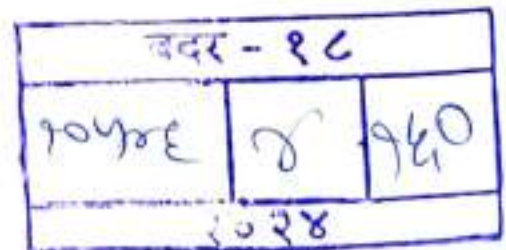 बदर - १८
१०५४६ ४ १६०
२०२४